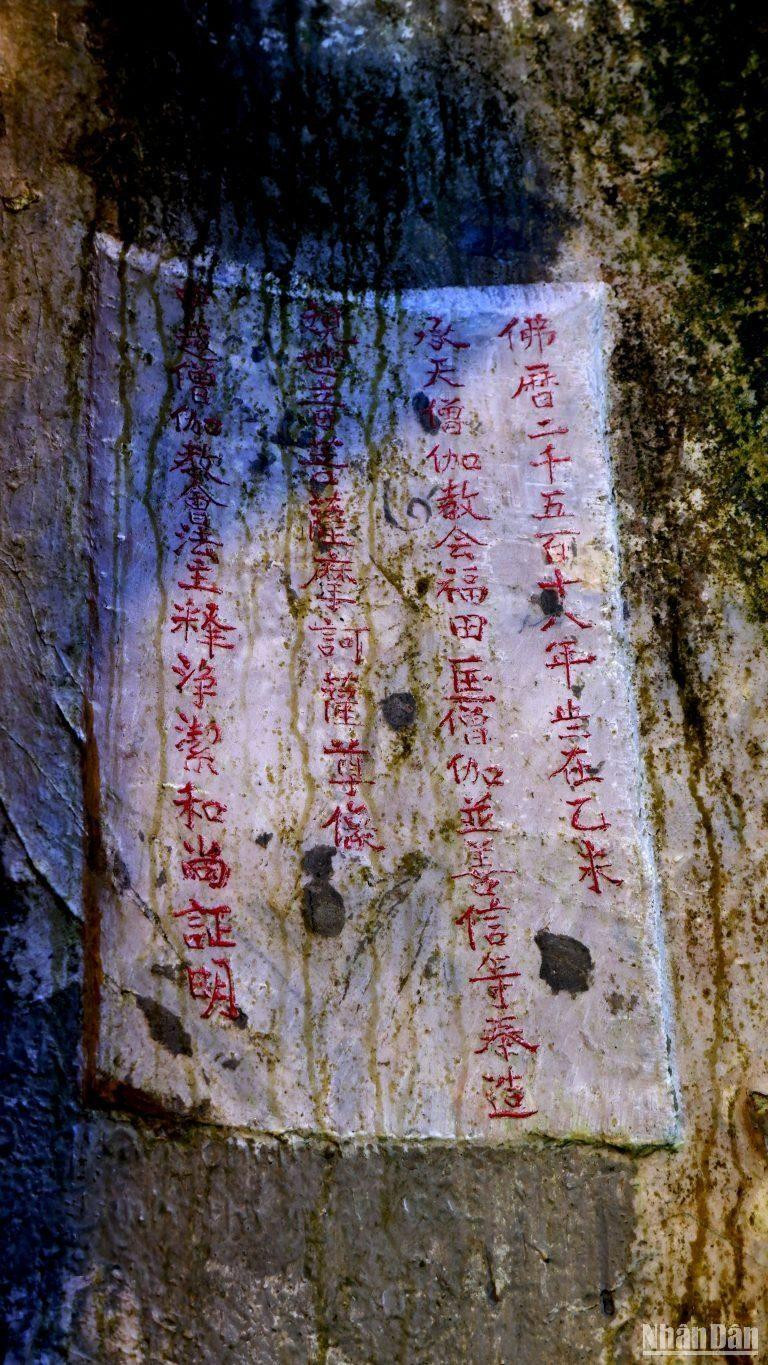 佛曆二千五百十八年岁在乙未
承天僧伽教会福田匡僧伽並善信等奉造
觀世音菩薩摩訶薩尊像
中越僧伽教會法主释浄潔和尚証明
NhânDân